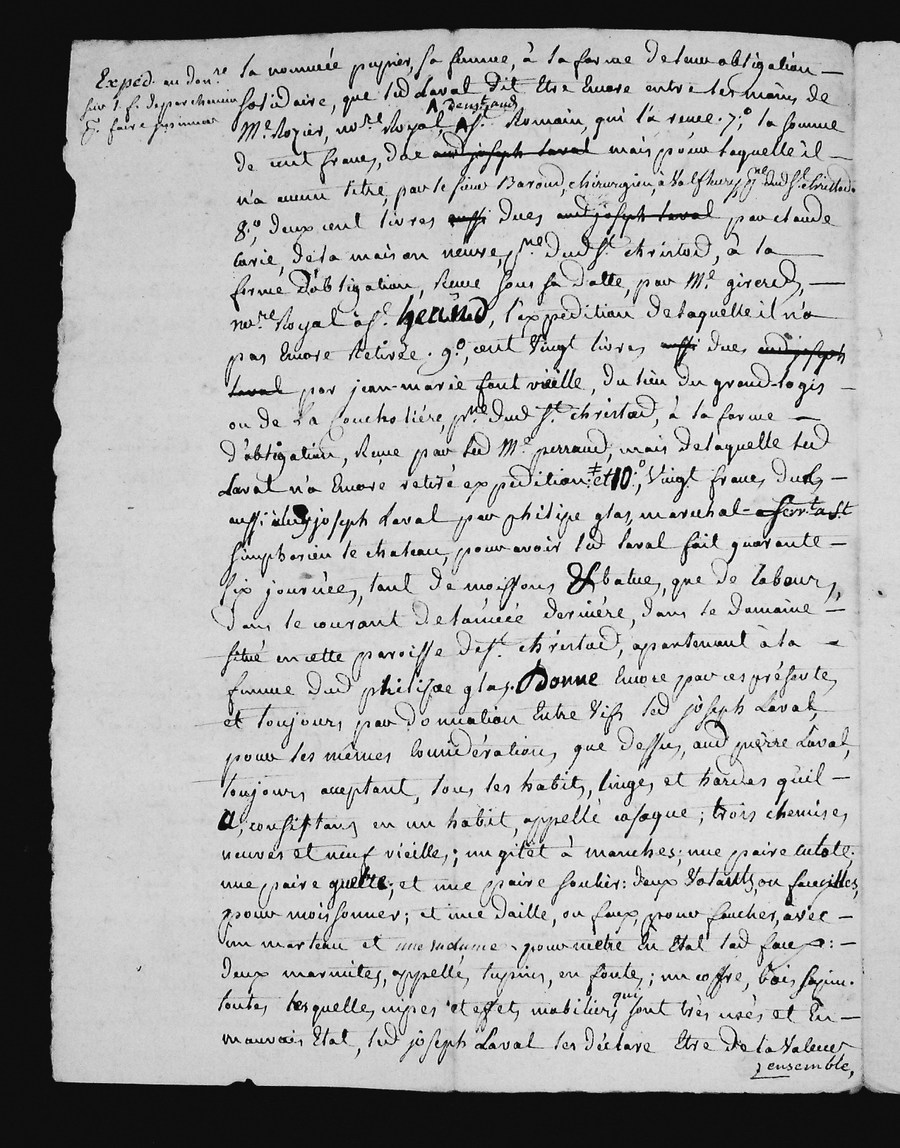 Expéd. au don.re
sur 1. f. de parchemin
P. faire insinuer
la nommée papier, sa femme, à la forme de leur obligation —
solidaire, que led Laval dit Etre Encore entre les mains de
Me. Rozier, no.re Royal, à St. Romain, qui l'a reçue. 7.° la somme
de cent francs, due aud joseph Laval mais pour laquelle il —
n'a aucun titre, par le sieur Baroud, chirurgien, à Valfleury, p.ne dud St. christod
8.°, deux cent livres aussi dues aud joseph Laval par claude
Carié, de la maison neuve, p.ne dud St. christod, à la
forme d'obligation, Reçue sous sa datte, par Me. girerd, —
no.re Royal à St. heand, l'expedition de laquelle il n'a
pas Encore Retirée. 9.°, cent Vingt livres aussi dues aud joseph
Laval par jean-marie font vieille, du lieu du grand-logis —
ou de La Coucholiére, p.ne dud St. christod, à la forme —
d'obligation, Reçue par led Me. perraud, mais de laquelle led
Laval n'a Encore retiré expedition: et 10.°, Vingt francs dus —
aussi aud joseph Laval par philipe glas, maréchal à St
Simphorien le chateau, pour avoir led Laval fait quarante —
six journées, tant de moissons & batues, que de labours,
dans le courant de l'année derniére, dans le domaine —
situé en cette paroisse de St. christod, apartenant à la —
femme dud philipe glas. Donne Encore par ces présentes
et toujours par donnation Entre Vifs led joseph Laval,
pour les mêmes Considérations que dessus, aud pierre Laval,
toujours acceptant, tous les habits, linges et hardes qu'il —
a, consistans en un habit, appellé casaque; trois chemises
neuves et neuf vieilles; un gilet à manches; une paire culote;
une paire guette; et une paire soulier: deux Volants, ou faucilles,
pour moissonner; et une daille, ou faux, pour faucher, avec —
un marteau et une enclume, pour mettre En Etat led faux: —
deux marmites, appellés tupins, en fonte; un coffre, bois sapin.
toutes lesquelles nipes et effets mobiliers qui sont très usés et En —
mauvais Etat, led joseph Laval les déclare Etre de la Valeur
ensemble,